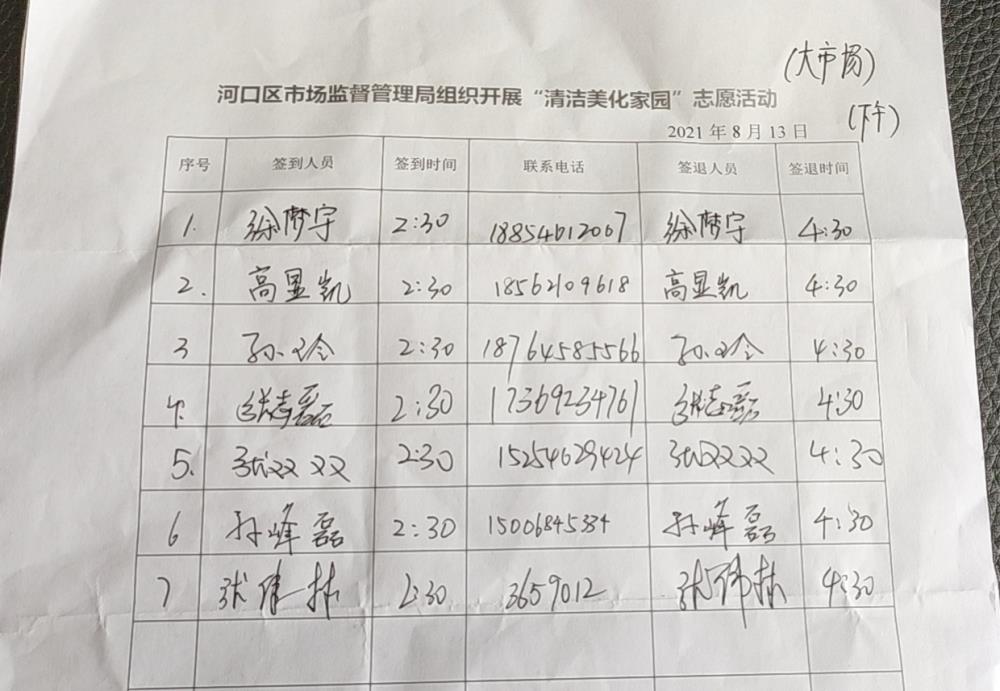 (大市场)
河口区市场监督管理局组织开展“清洁美化家园”志愿活动
(下午)
2021 年 8 月 13 日
序号 签到人员 签到时间 联系电话 签退人员 签退时间
1. 徐梦宇 2:30 18854612067 徐梦宇 4:30
2. 高显凯 2:30 18562109618 高显凯 4:30
3 孙玲 2:30 18764585566 孙玲 4:30
4. 张志磊 2:30 17369234761 张志磊 4:30
5. 张双双 2:30 15254629424 张双双 4:30
6 孙峰磊 2:30 15006845334 孙峰磊 4:30
7 张 2:30 3659012 张 4:30